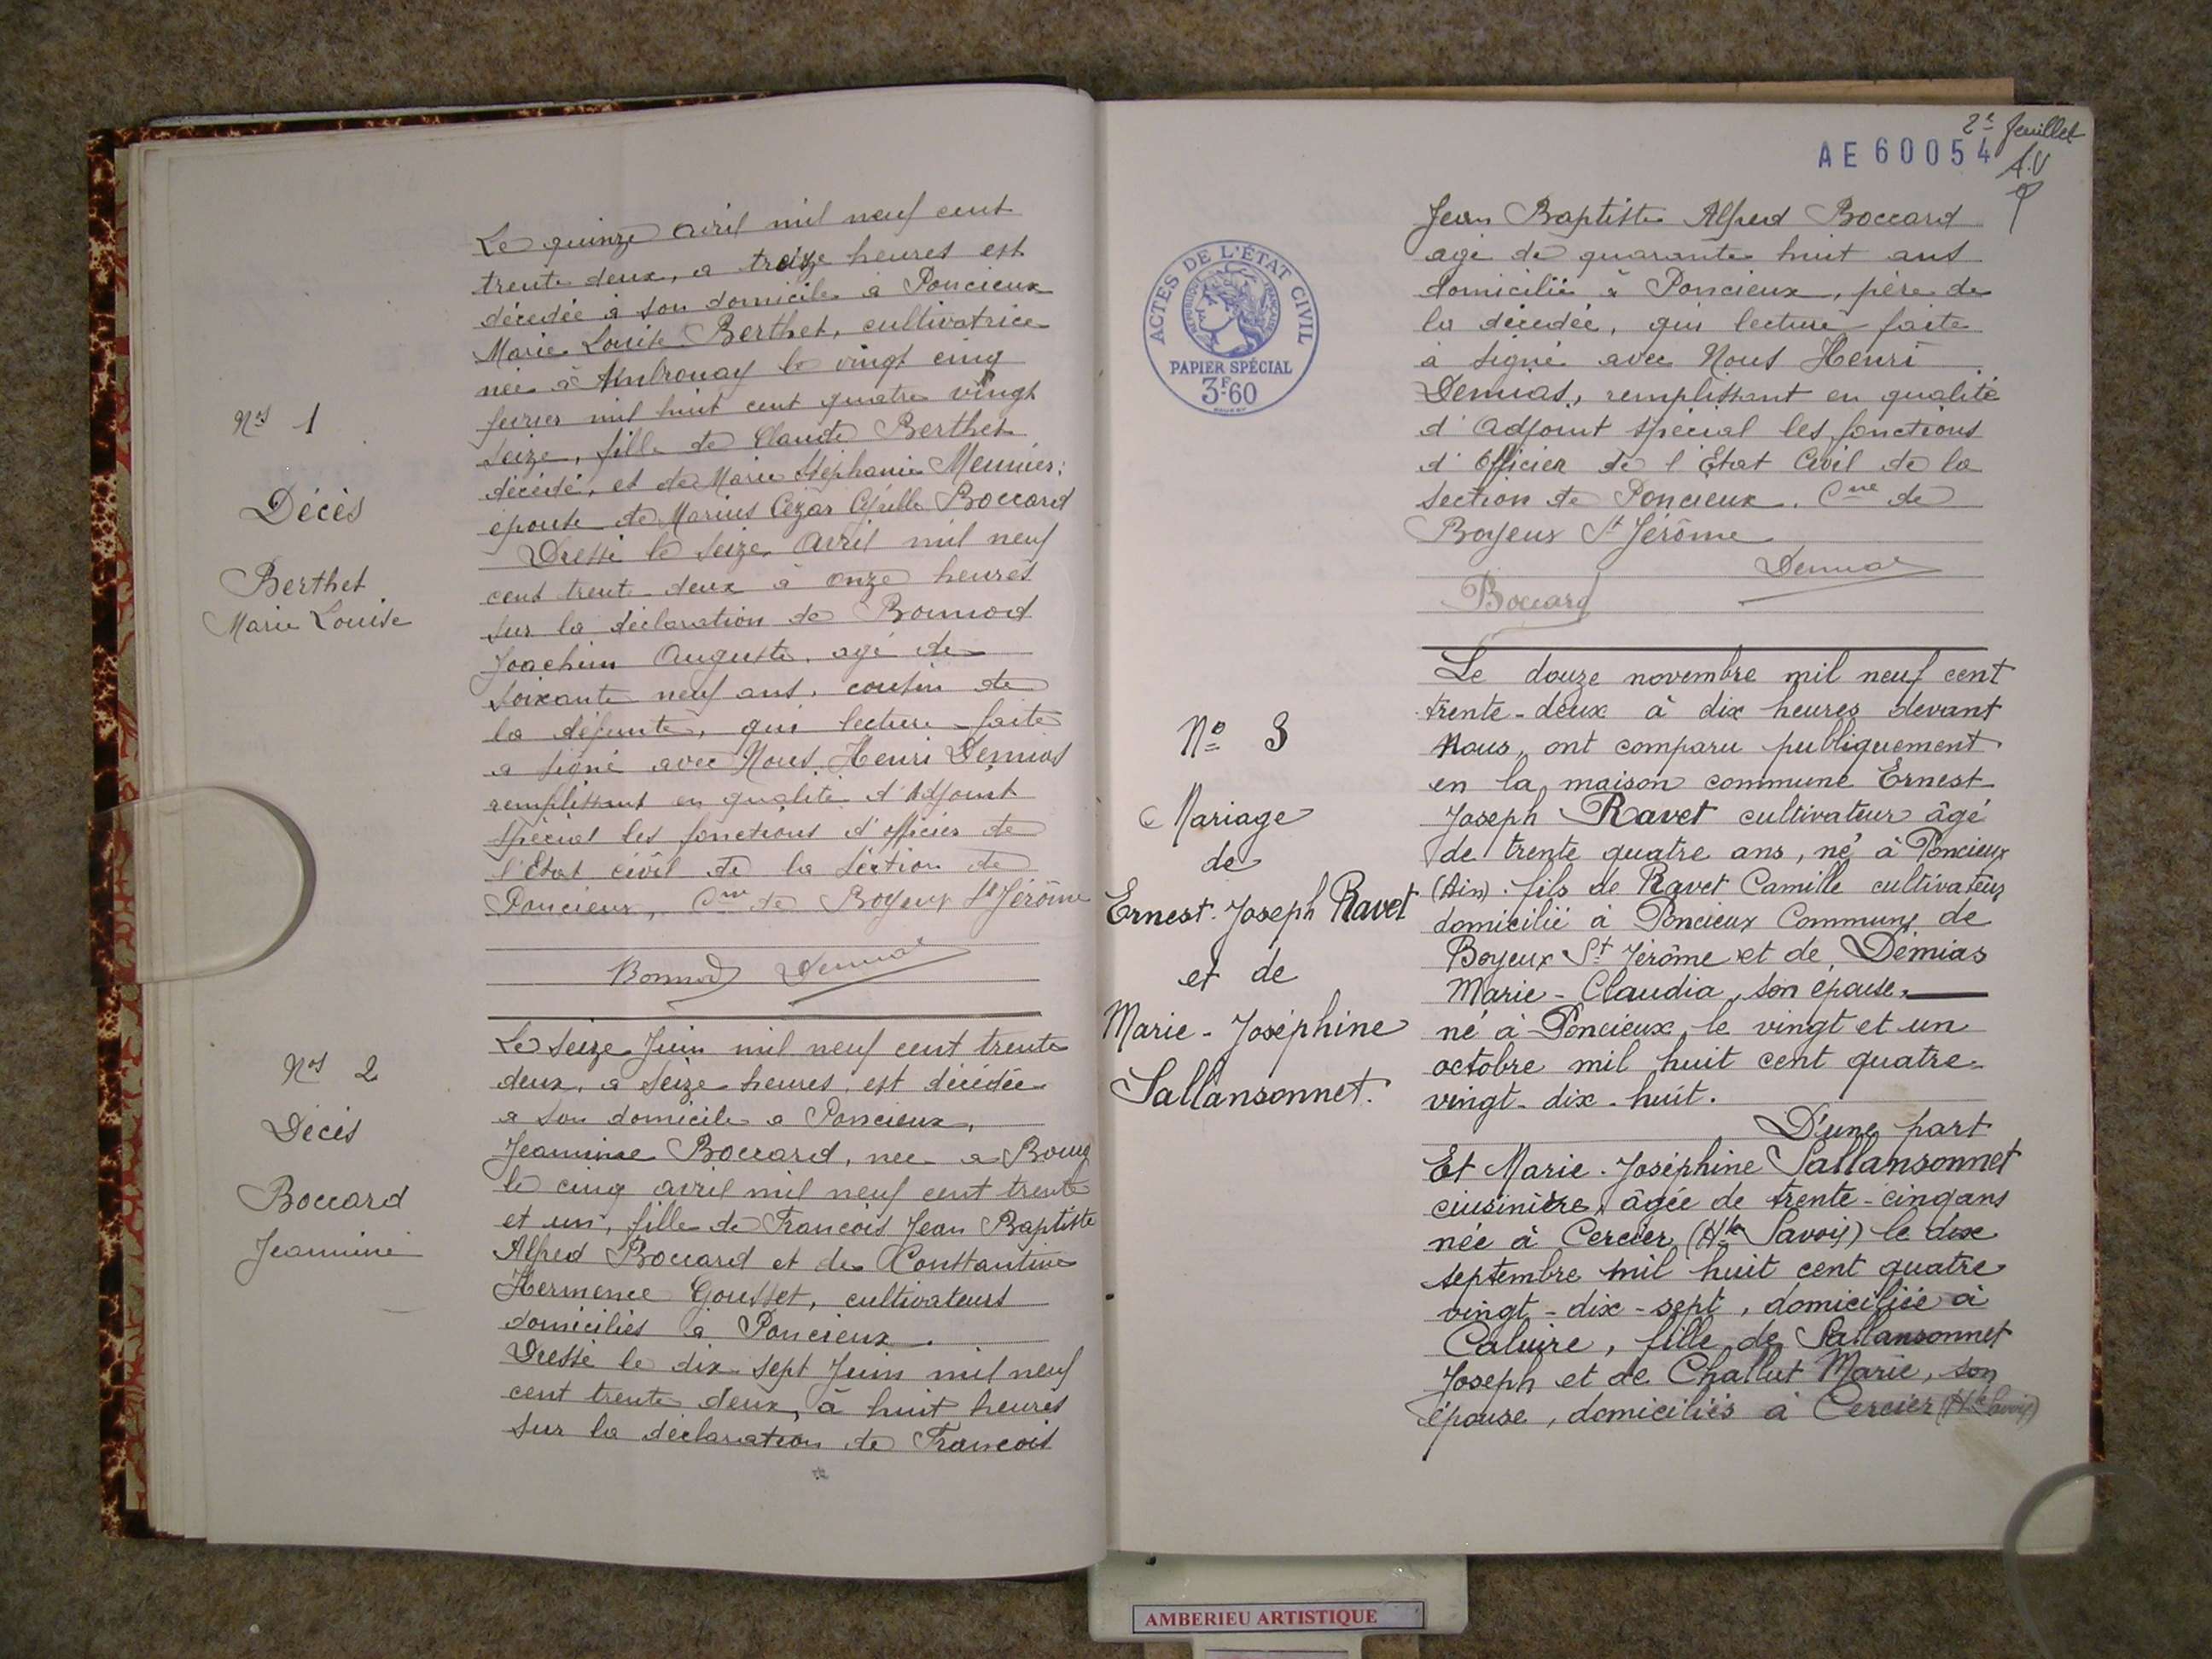 Nos 1
Décès
Berthet
Marie Louise
Le quinze avril mil neuf cent
trente deux, a treize heures est
décedée à son domicile a Poncieux
Marie Louise Berthet, cultivatrice
née à Ambronay le vingt cinq
fevrier mil huit cent quatre vingt
seize, fille de Claude Berthet
décédé, et de Marie Stéphanie Meunier,
épouse de Marius Cézar Boccard
Dressé le seize avril mil neuf
cent trente deux à onze heures
sur la déclaration de Bonnod
Joachim Auguste, agé de
soixante neuf ans, cousin de
la défunte, qui lecture faite
a signé avec Nous, Henri Demias
remplissant en qualité d'Adjoint
spécial les fonctions d'officier de
l'Etat civil de la section de
Poncieux, Cne de Boyeux St Jérôme
Bonnod Demias
Nos 2
Décès
Boccard
Jeannine
Le seize Juin mil neuf cent trente
deux, a seize heures, est décédée
a son domicile a Poncieux,
Jeannine Boccard, nee a Bourg
le cinq avril mil neuf cent trente
et un, fille de Francois Jean Baptiste
Alfred Boccard et de Constantine
Hermence Gousset, cultivateurs
domiciliés à Poncieux.
Dressé le dix sept Juin mil neuf
cent trente deux, à huit heures
sur la déclaration de Francois
2e feuillet
AE60054
A.V
ACTES DE L'ÉTAT CIVIL
RÉPUBLIQUE FRANÇAISE
PAPIER SPÉCIAL
3F60
Jean Baptiste Alfred Boccard
agé de quarante huit ans
domicilié à Poncieux, père de
la décedée, qui lecture faite
à signé avec Nous Henri
Demias, remplissant en qualité
d'Adjoint spécial les fonctions
d'Officier de l'Etat Civil de la
section de Poncieux. Cne de
Boyeux St Jérôme
Demias
Boccard
No 3
Mariage
de
Ernest-Joseph Ravet
et de
Marie-Joséphine
Sallansonnet.
Le douze novembre mil neuf cent
trente-deux à dix heures devant
Nous, ont comparu publiquement
en la maison commune Ernest
Joseph Ravet cultivateur âgé
de trente quatre ans, né à Poncieux
(Ain). fils de Ravet Camille cultivateur
domicilié à Poncieux Commune de
Boyeux St Jérôme et de Démias
Marie-Claudia, son épouse,
né à Poncieux, le vingt et un
octobre mil huit cent quatre-
vingt-dix-huit.
D'une part
Et Marie-Joséphine Sallansonnet
ciusinière, âgée de trente-cinq ans
née à Cercier (Hte Savoie) le dix
septembre mil huit cent quatre
vingt-dix-sept, domiciliée à
Caluire, fille de Sallansonnet
Joseph et de Challut Marie, son
épouse, domiciliés à Cercier (Hte Savoie)
AMBERIEU ARTISTIQUE